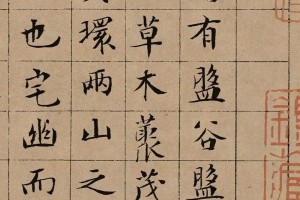 有盤谷盤
草木藂茂
環兩山之
也宅幽而